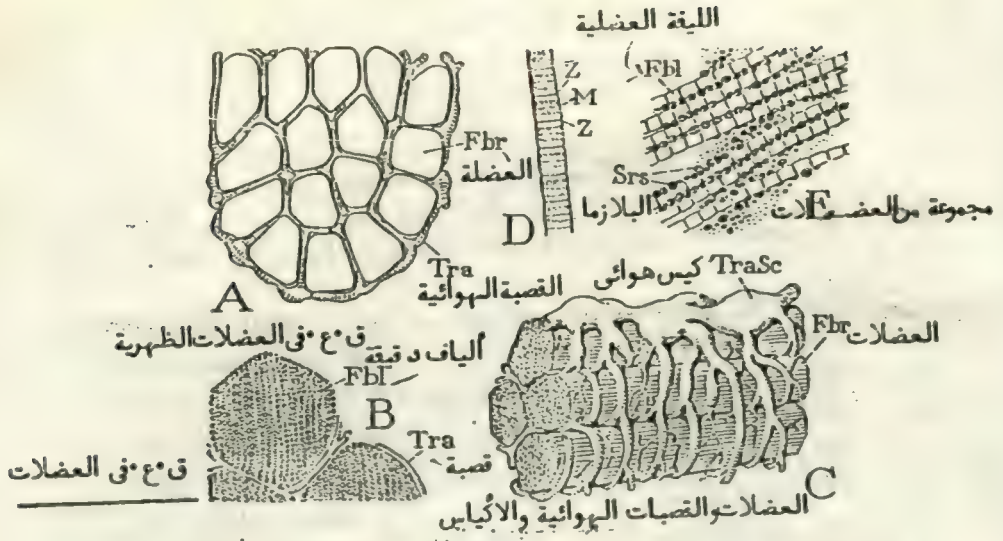 الليفة العضلية
Fbl
Z
M
Z
Fbr
العضلة
Srs
البلازما
D
E
مجموعة من العضــلات
Tra
القصبة الهوائية
A
كيس هوائى TraSc
Fbr
العضلات
ق٠ع٠فى العضلات الظهرية
ألياف دقيقة
Fbl
B
Tra
قصبة
ق٠ع٠فى العضلات
C
العضلات والقصبات الهوائية والاكياس